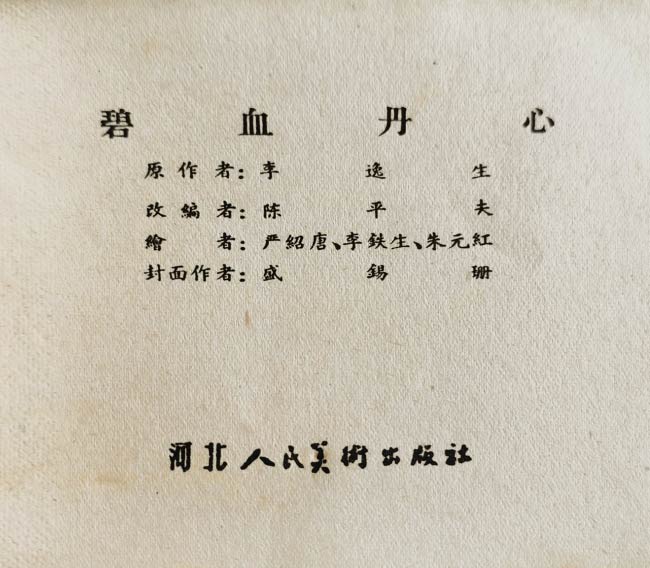 碧血丹心
原作者：李逸生
改編者：陈平夫
繪者：严紹唐、李鉄生、朱元紅
封面作者：盛錫珊
河北人民美術出版社